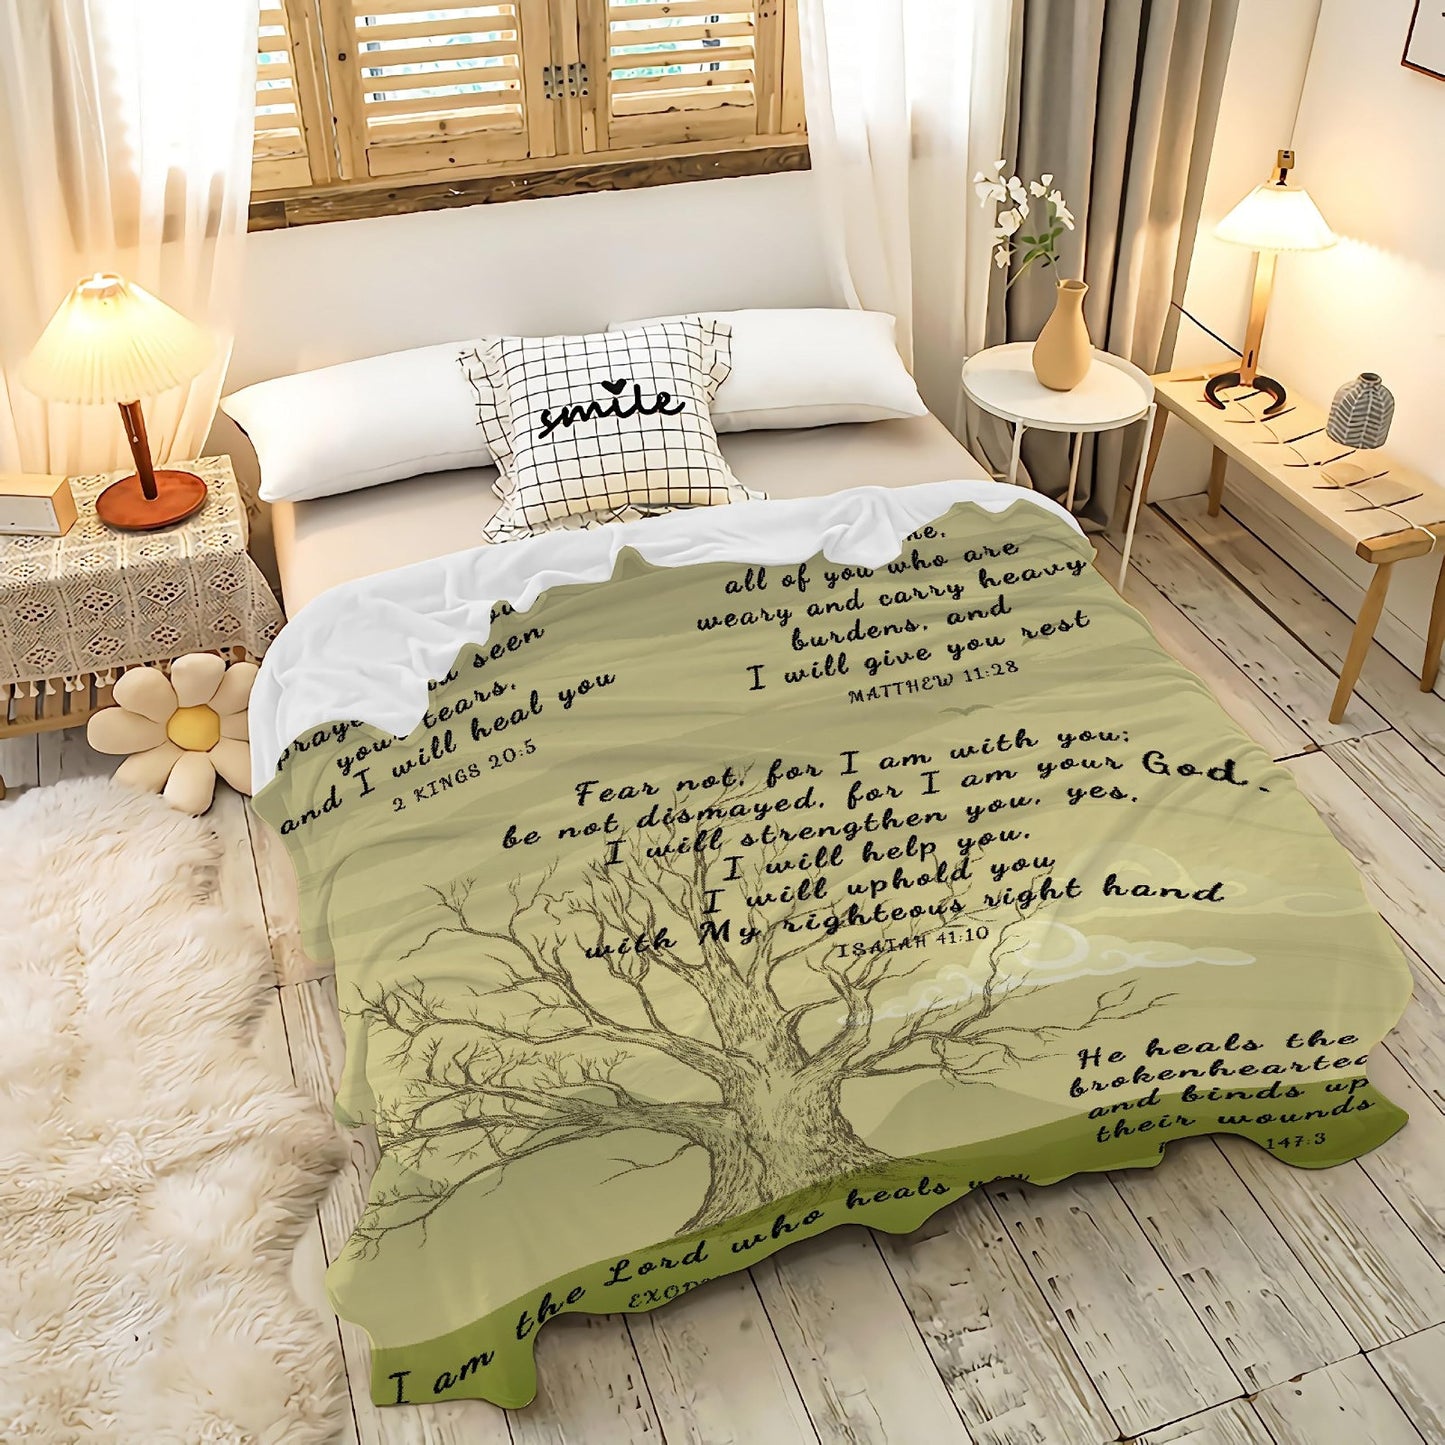 smile
all of you who are
weary and carry heavy
burdens, and
I will give you rest
MATTHEW 11:28
seen
your tears.
and I will heal you
2 KINGS 20:5
Fear not, for I am with you;
be not dismayed, for I am your God.
I will strengthen you, yes,
I will help you,
I will uphold you
with My righteous right hand
ISAIAH 41:10
He heals the
brokenhearted
and binds up
their wounds
147:3
I am the Lord who heals you